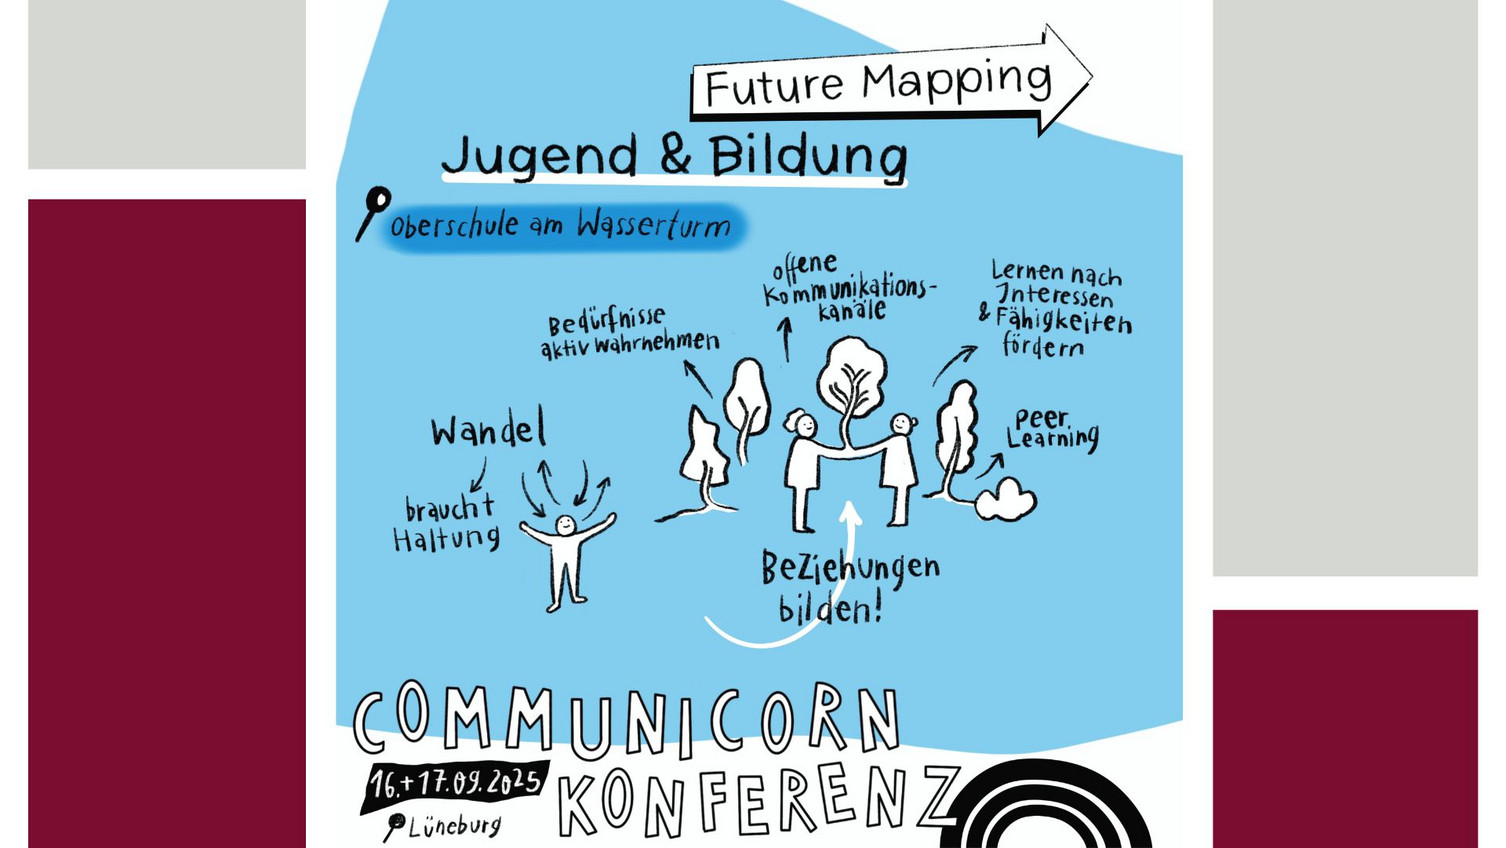 Future Mapping
Jugend & Bildung
Oberschule am Wasserturm
offene
Kommunikations-
kanäle
Lernen nach
Interessen
& Fähigkeiten
fördern
Bedürfnisse
aktiv wahrnehmen
Peer
Learning
Wandel
braucht
Haltung
Beziehungen
bilden!
COMMUNICORN
16.+17.09.2025
KONFERENZ
Lüneburg